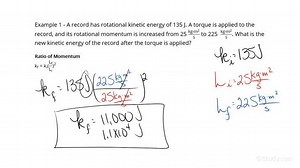 Example 1 - A record has rotational kinetic energy of 135 J. A torque is applied to the
record, and its rotational momentum is increased from 25 kg m²/s to 225 kg m²/s. What is the
new kinetic energy of the record after the torque is applied?
Ratio of Momentum
k_i = 135 J
L_i = 25 kg m²/s
L_f = 225 kg m²/s
k_f = 135 J (225 kg m²/s / 25 kg m²/s)²
k_f = 11,000 J
1.1x10⁴ J